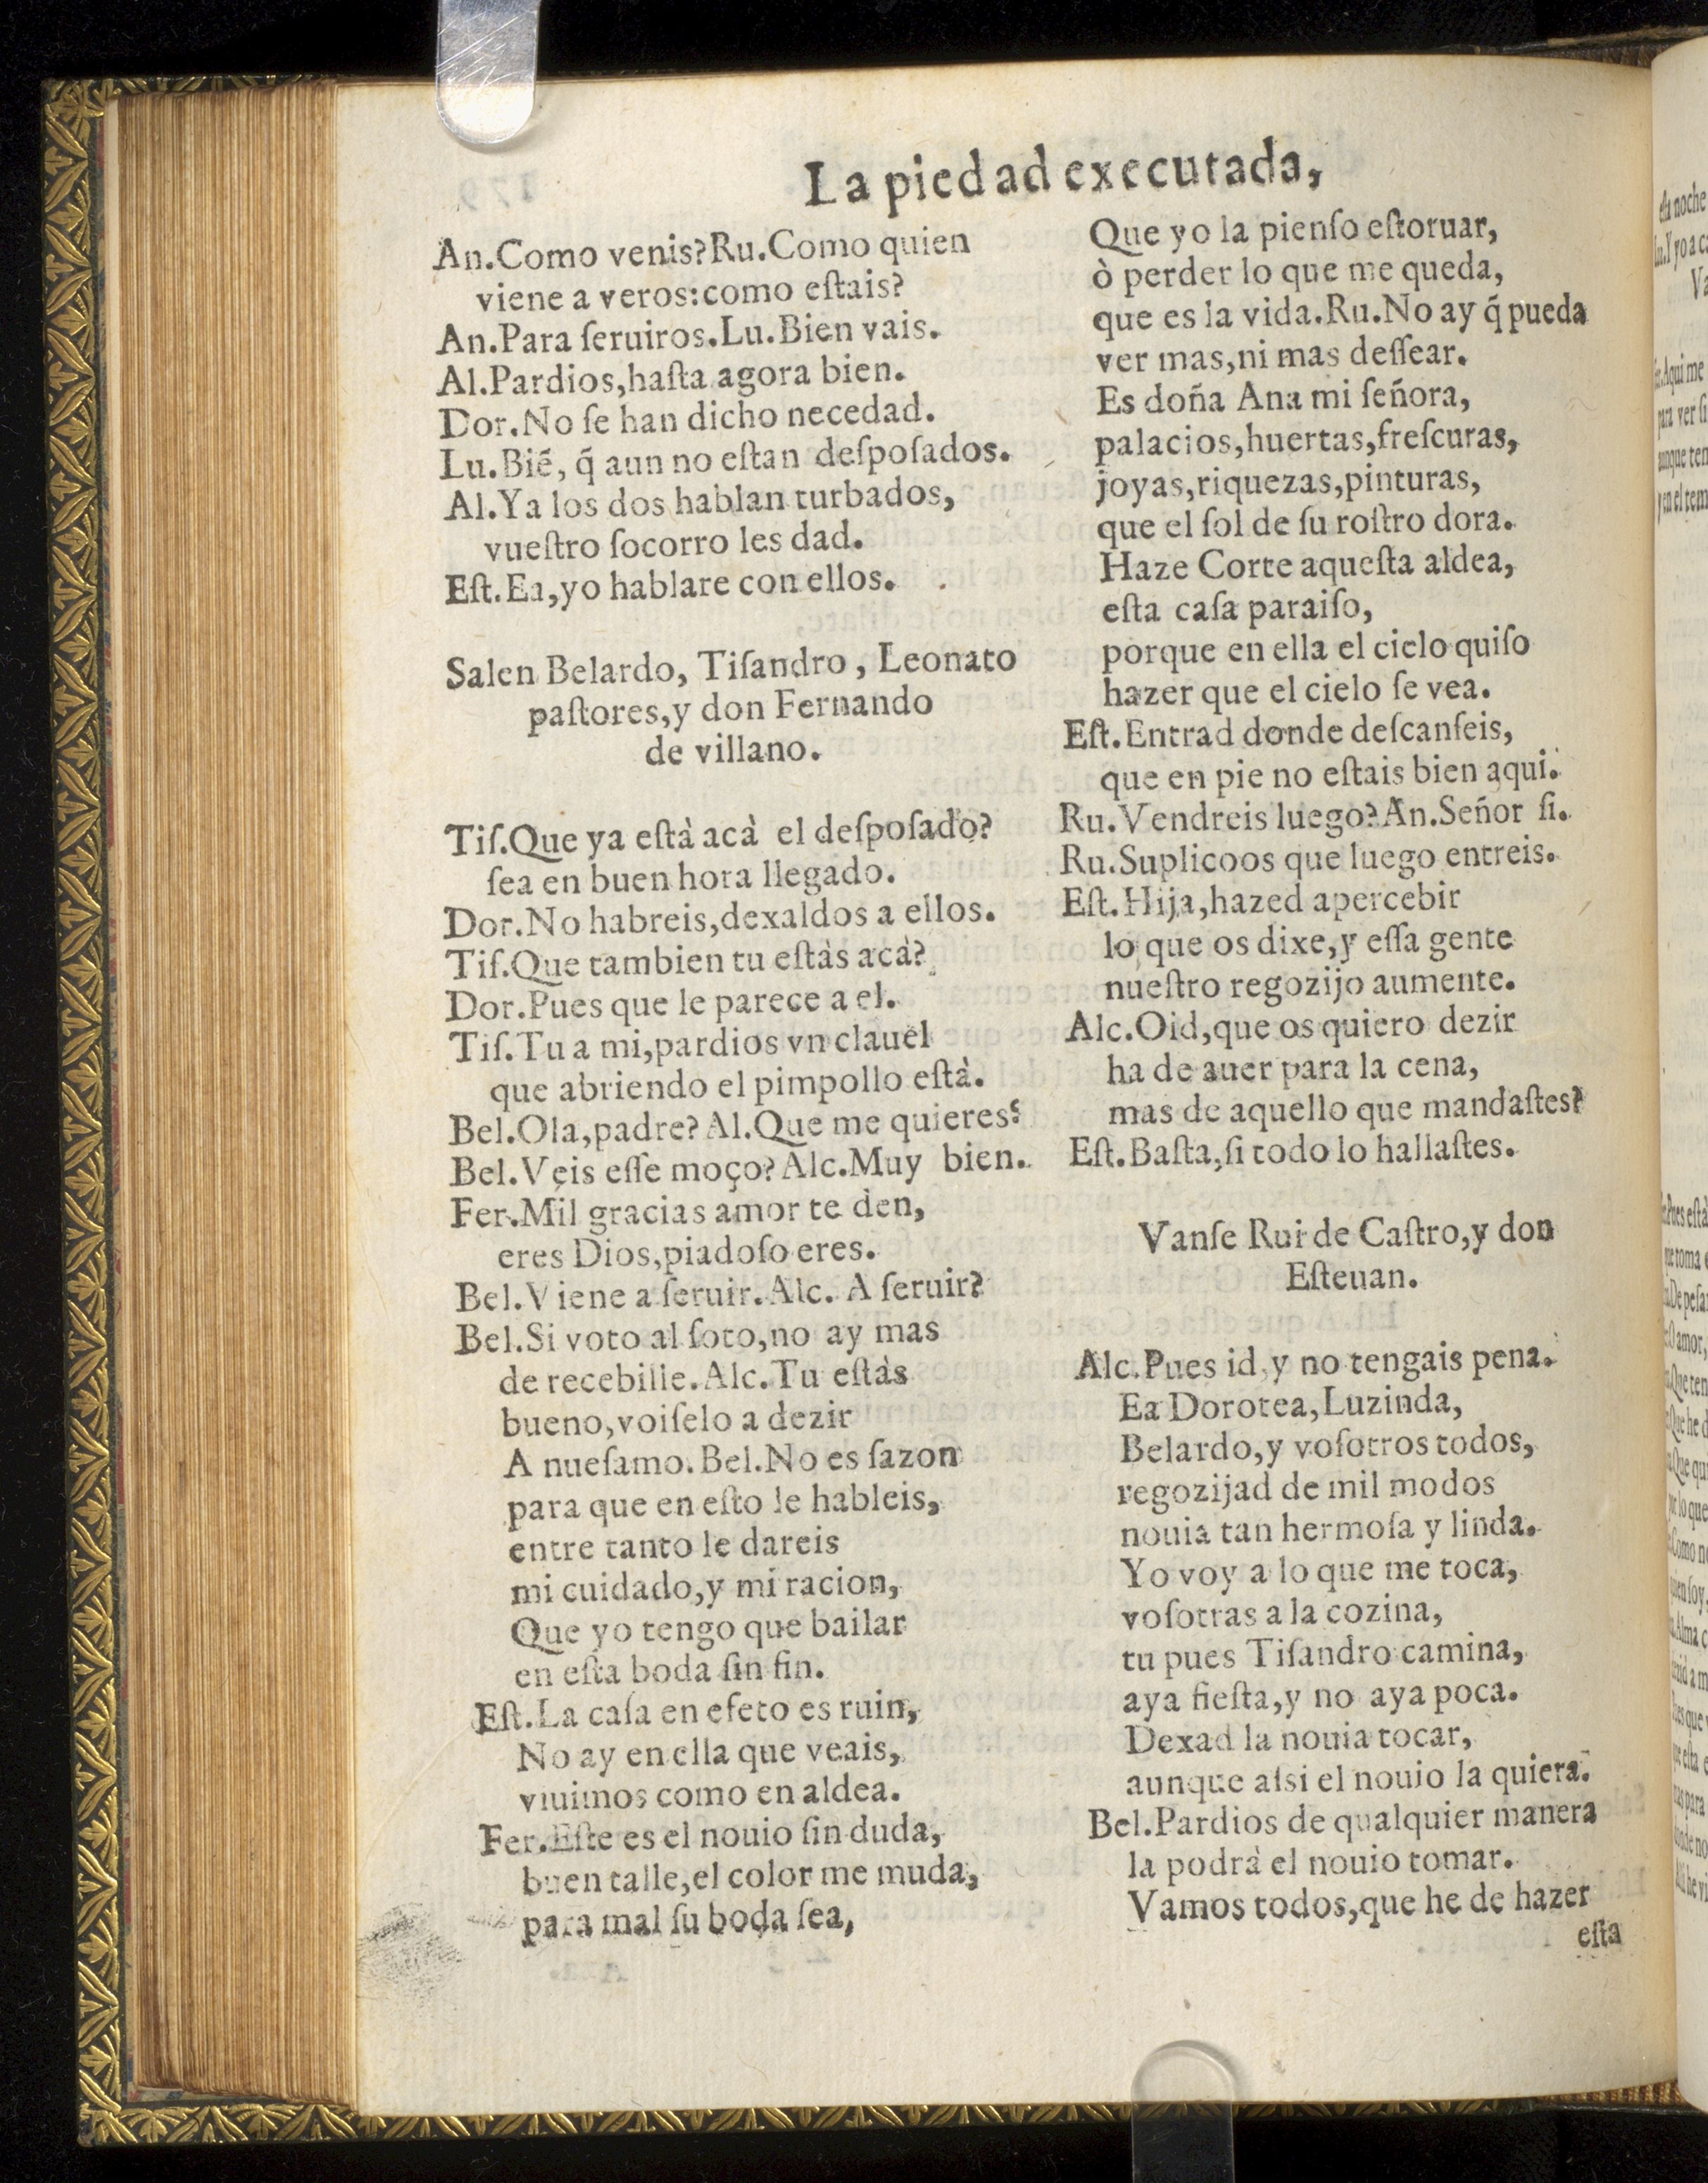 La piedad executada,
An.Como venis?Ru.Como quien
viene a veros:como eſtais?
An.Para ſeruiros.Lu.Bien vais.
Al.Pardios,haſta agora bien.
Dor.No ſe han dicho necedad.
Lu.Biẽ, q̃ aun no eſtan deſpoſados.
Al.Ya los dos hablan turbados,
vueſtro ſocorro les dad.
Eſt.Ea,yo hablare con ellos.
Salen Belardo, Tiſandro, Leonato
paſtores,y don Fernando
de villano.
Tiſ.Que ya eſtà acà el deſpoſado?
ſea en buen hora llegado.
Dor.No habreis,dexaldos a ellos.
Tiſ.Que tambien tu eſtàs acà?
Dor.Pues que le parece a el.
Tiſ.Tu a mi,pardios vn clauel
que abriendo el pimpollo eſtà.
Bel.Ola,padre?Al.Que me quieres?
Bel.Veis eſſe moço?Alc.Muy bien.
Fer.Mil gracias amor te den,
eres Dios,piadoſo eres.
Bel.Viene a ſeruir.Alc. A ſeruir?
Bel.Si voto al ſoto,no ay mas
de recebille.Alc.Tu eſtàs
bueno,voiſelo a dezir
A nueſamo.Bel.No es ſazon
para que en eſto le hableis,
entre tanto le dareis
mi cuidado,y mi racion,
Que yo tengo que bailar
en eſta boda ſin fin.
Eſt.La caſa en efeto es ruin,
No ay en ella que veais,
viuimos como en aldea.
Fer.Eſte es el nouio ſin duda,
buen talle,el color me muda,
para mal ſu boda ſea,
Que yo la pienſo eſtoruar,
ò perder lo que me queda,
que es la vida.Ru.No ay q̃ pueda
ver mas,ni mas deſſear.
Es doña Ana mi ſeñora,
palacios,huertas,freſcuras,
joyas,riquezas,pinturas,
que el ſol de ſu roſtro dora.
Haze Corte aqueſta aldea,
eſta caſa paraiſo,
porque en ella el cielo quiſo
hazer que el cielo ſe vea.
Eſt.Entrad donde deſcanſeis,
que en pie no eſtais bien aqui.
Ru.Vendreis luego?An.Señor ſi.
Ru.Suplicoos que luego entreis.
Eſt.Hija,hazed apercebir
lo que os dixe,y eſſa gente
nueſtro regozijo aumente.
Alc.Oid,que os quiero dezir
ha de auer para la cena,
mas de aquello que mandaſtes?
Eſt.Baſta,ſi todo lo hallaſtes.
Vanſe Rui de Caſtro,y don
Eſteuan.
Alc.Pues id,y no tengais pena.
Ea Dorotea,Luzinda,
Belardo,y voſotros todos,
regozijad de mil modos
nouia tan hermoſa y linda.
Yo voy a lo que me toca,
voſotras a la cozina,
tu pues Tiſandro camina,
aya fieſta,y no aya poca.
Dexad la nouia tocar,
aunque aſsi el nouio la quiera.
Bel.Pardios de qualquier manera
la podrà el nouio tomar.
Vamos todos,que he de hazer
eſta